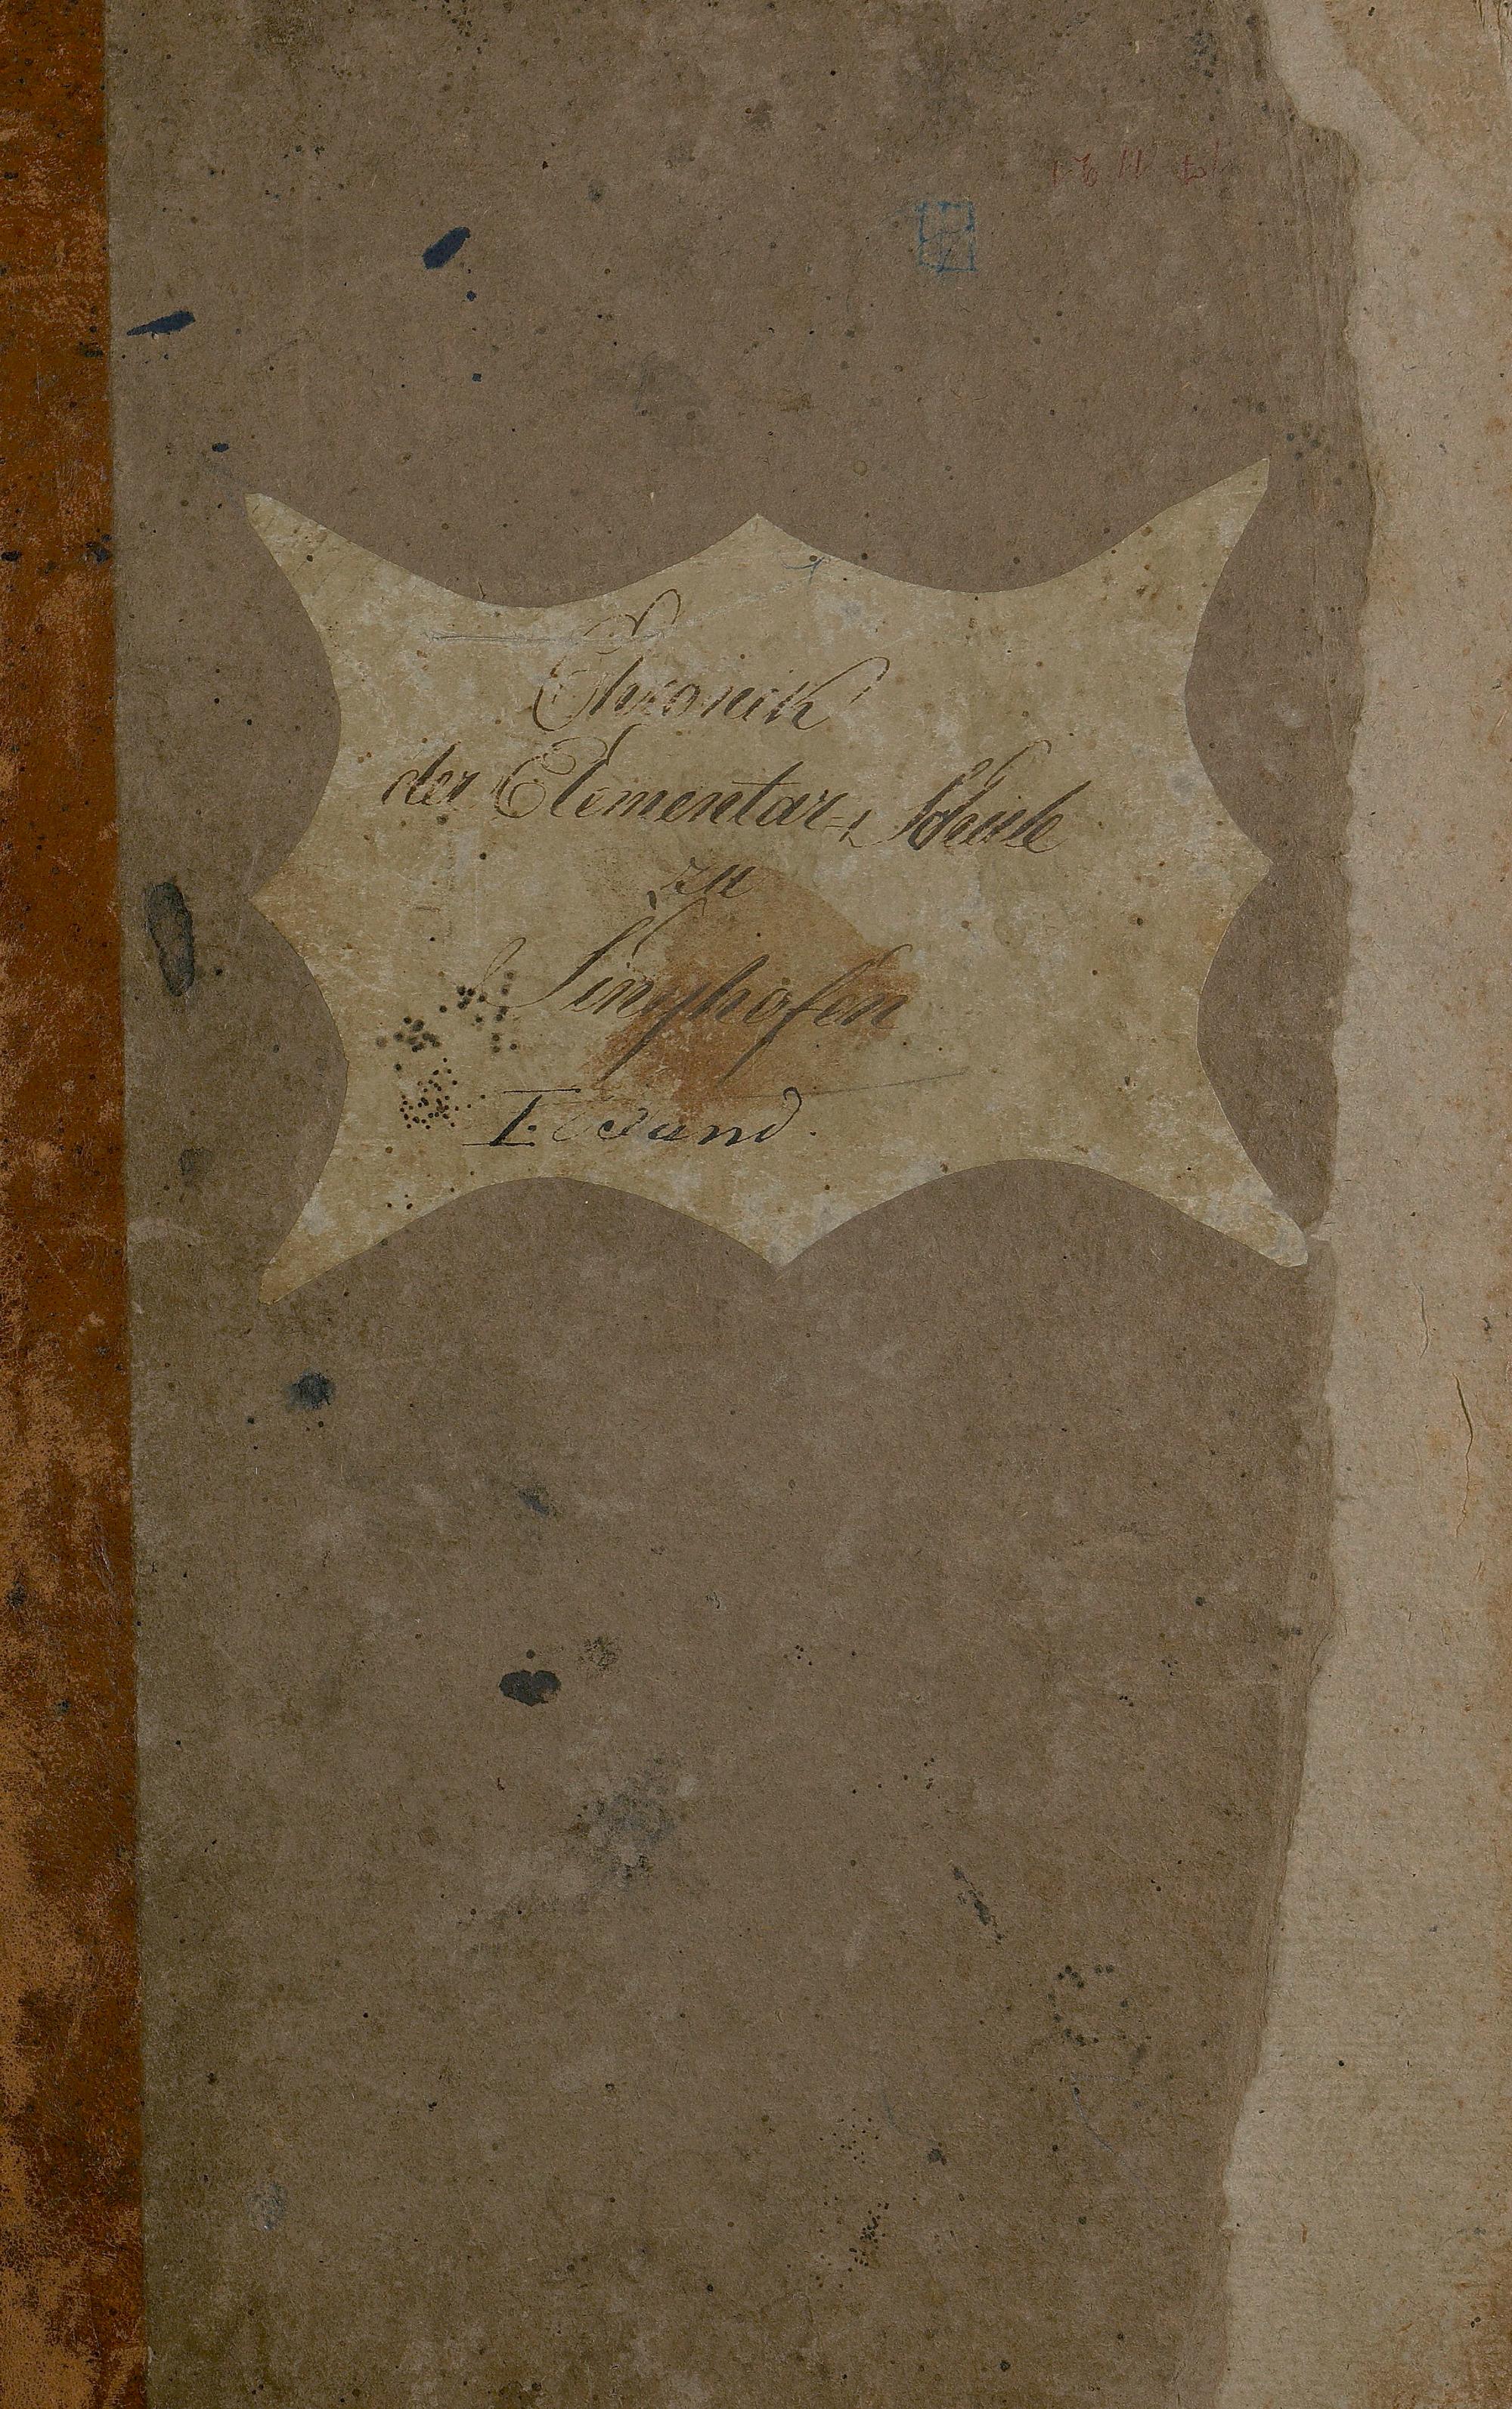 Chronik
der Elementar-Schule
zu
Singhofen
I. Band.